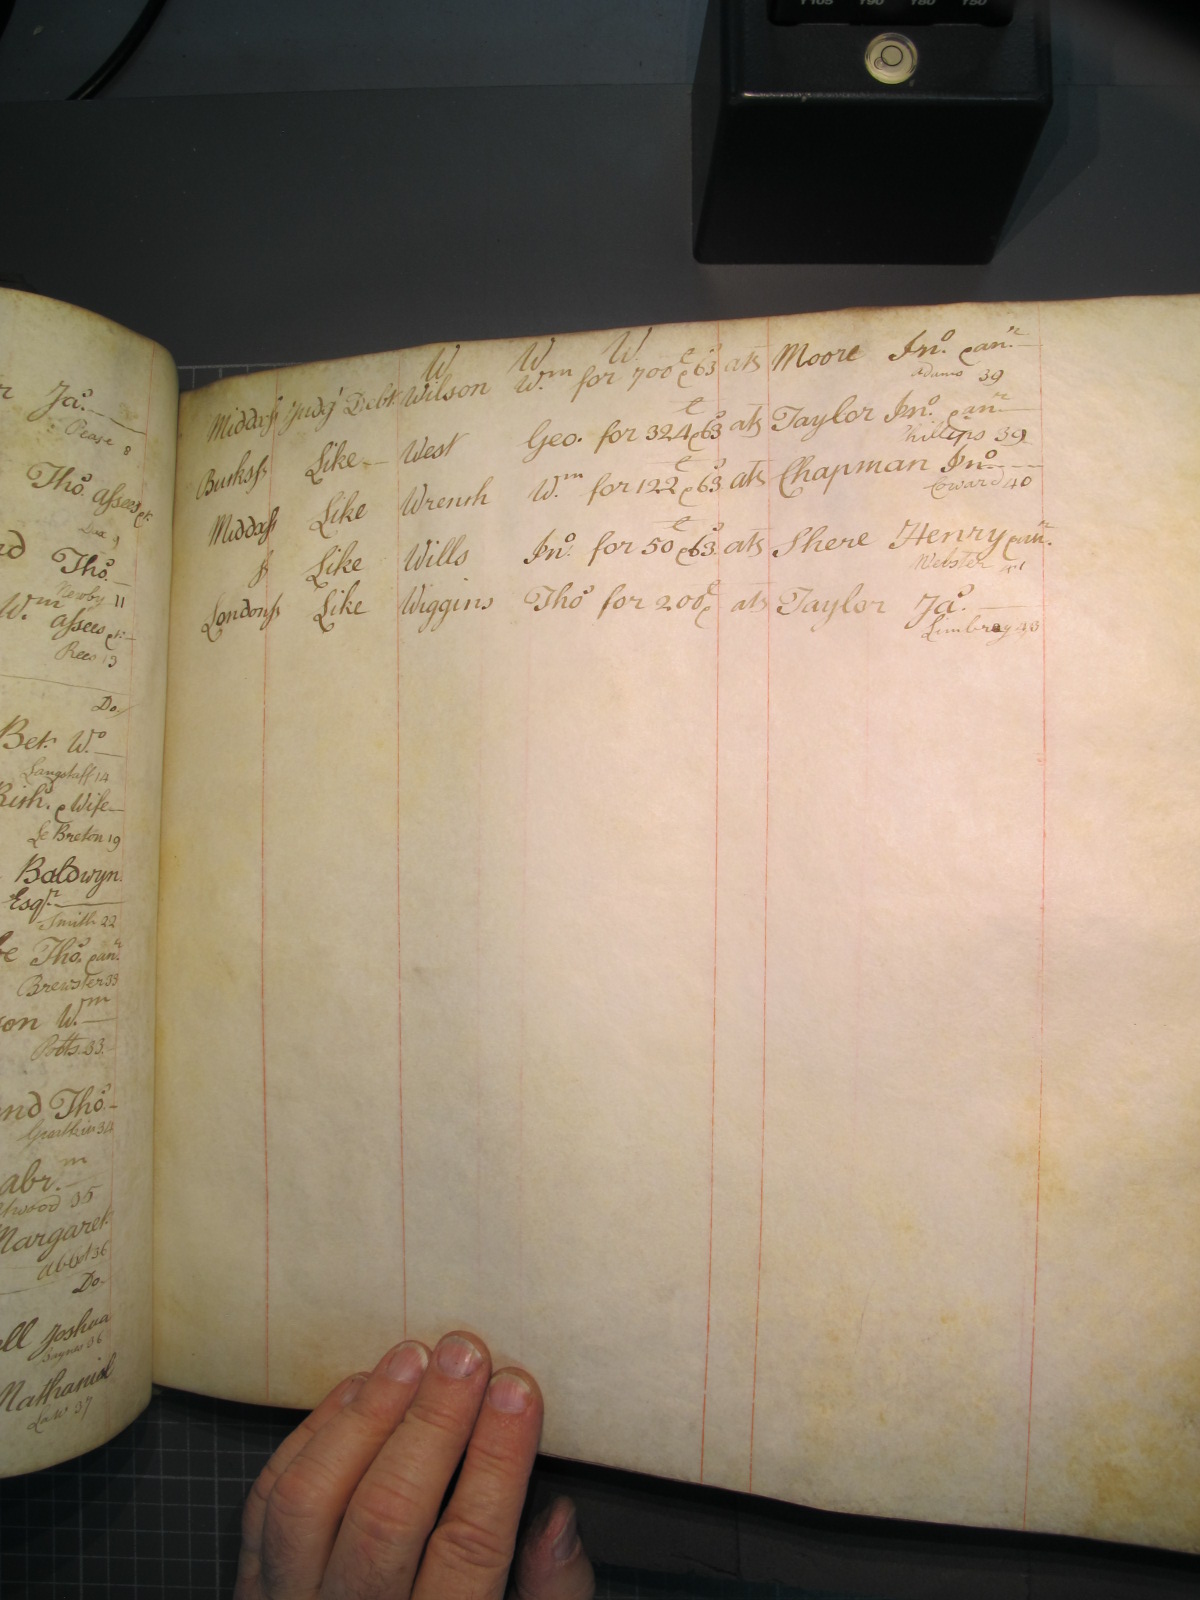 Y105 Y90 Y80 Y50
r Ja.
Pease 8
Tho. assees &c.
Tho.
Newby 11
Wm assees &c.
Rees 13
Do.
Bet Wo
Langstaff 14
Rich. & Wife
Le Breton 19
Baldwyn
Esqr.
Smith 22
Tho. & anr.
Brewster 33
on Wm
Potts 33
nd Tho.
abr.m
wood 35
Margaret
Abbot 36
Do.
ell Joshua
Nathaniel
Law 37
W W W
Middx ss Judgt Debt Wilson Wm for 700£ & 63s ats Moore Jno. & anr.
Adams 39
Bucks ss Like West Geo. for 324£ & 63s ats Taylor Jno. & anr.
Phillips 39
Middx ss Like Wrench Wm for 122£ & 63s ats Chapman Jno.
Coward 40
ss Like Wills Jno. for 50£ & 63s ats Shere Henry & anr.
Webster
London ss Like Wiggins Tho for 200£ &c ats Taylor Ja.
Limbrey 43